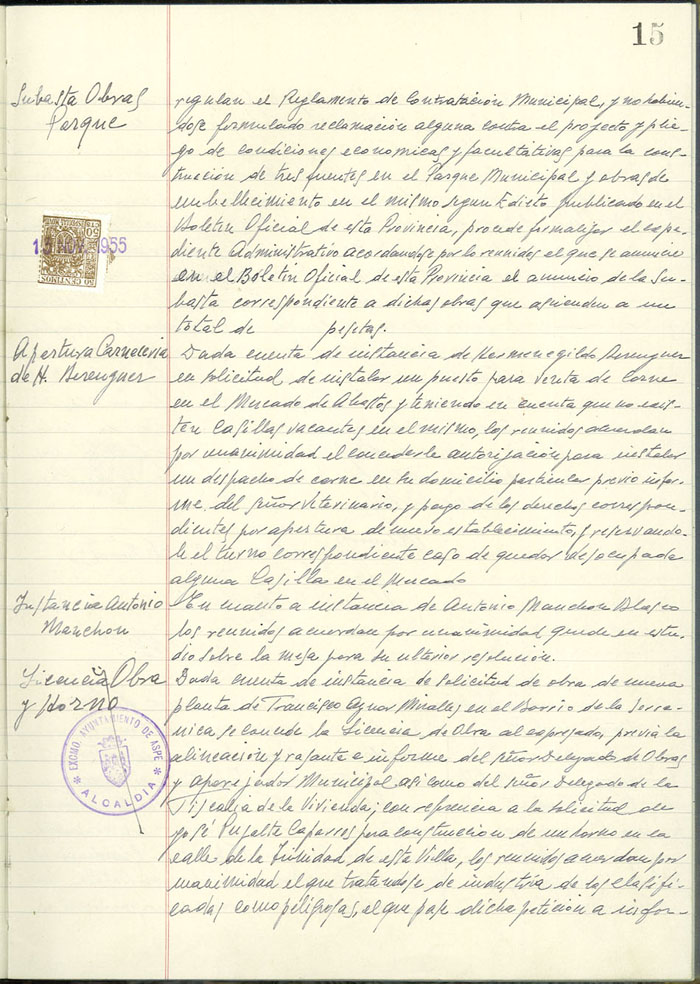 15
Subasta Obras
Parque
regulan el Reglamento de Contratación Municipal, y no habien-
dose formulado reclamación alguna contra el proyecto y plie-
go de condiciones economicas y facultativas para la cons-
trucción de tres fuentes en el Parque Municipal y obras de
embellecimiento en el mismo segun Edicto publicado en el
Boletin Oficial de esta Provincia, procede formalizar el expe-
diente Administrativo acordandose por los reunidos el que se anuncie
en el Boletin Oficial de esta Provincia el anuncio de la Su-
basta correspondiente a dichas obras que ascienden a un
total de pesetas.
50 CENTIMOS
NOV 1955
Apertura Carneceria
de H. Berenguer
Dada cuenta de instancia de Hermenegildo Berenguer
en solicitud de instalar un puesto para venta de carne
en el Mercado de Abastos y teniendo en cuenta que no exis-
ten Casillas vacantes en el mismo, los reunidos acuerdan
por unanimidad el concederle autorización para instalar
un despacho de carne en su domicilio particular previo infor-
me del Señor Veterinario, y pago de los derechos correspon-
dientes por apertura de nuevo establecimiento, y reservando-
le el turno correspondiente caso de quedar desocupada
alguna Casilla en el Mercado
Instancia Antonio
Manchon
En cuanto a instancia de Antonio Manchon Blasco
los reunidos acuerdan por unanimidad quede en estu-
dio sobre la mesa para su ulterior resolución.
Licencia Obra
y Horno
Dada cuenta de instancia de solicitud de obra de nueva
planta de Francisco Aznar Miralles en el Barrio de la Serra-
nica se concede la Licencia de Obra al expresado, previa la
alineación y rasante e informe del Señor Delegado de Obras
y aparejador Municipal asi como del Señor Delegado de la
Fiscalia de la Vivienda; con referencia a la solicitud de
José Pujalte Caparros para construccion de un horno en la
calle de la Trinidad de esta Villa, los reunidos acuerdan por
unanimidad el que tratandose de industria de las clasifi-
cadas como peligrosas, el que pase dicha petición a infor-
EXCMO. AYUNTAMIENTO DE ASPE
* ALCALDIA *